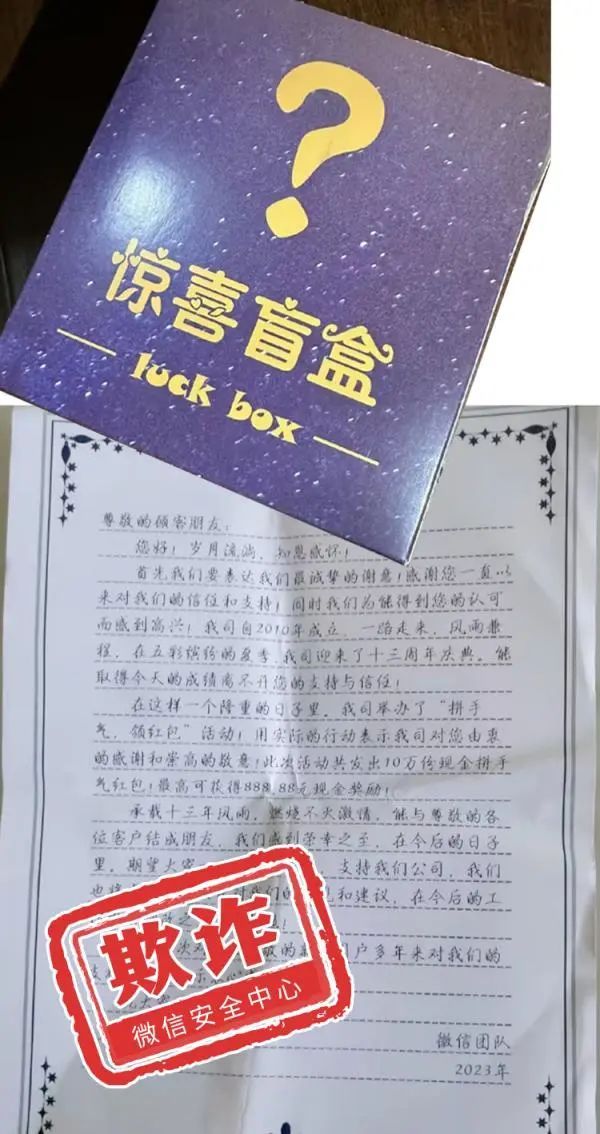 ?
惊喜盲盒
luck box
尊敬的顾客朋友：
您好！岁月流淌，知恩感怀！
首先我们要表达我们最诚挚的谢意！感谢您一直以
来对我们的信任和支持！同时我们为能得到您的认可
而感到高兴！我司自2010年成立，一路走来，风雨兼
程，在五彩缤纷的夏季，我司迎来了十三周年庆典。能
取得今天的成绩离不开您的支持与信任！
在这样一个隆重的日子里，我司举办了“拼手
气，领红包”活动！用实际的行动表示我司对您由衷
的感谢和崇高的敬意！此次活动共发出10万份现金拼手
气红包！最高可获得888.88元现金奖励！
承载十三年风雨，燃烧不灭激情，能与尊敬的各
位客户结成朋友，我们感到荣幸之至，在今后的日子
里，期望大家 支持我们公司，我们
也 对我们的 和建议，在今后的工
次对 户多年来对我们的
欺诈
微信安全中心
微信团队
2023年